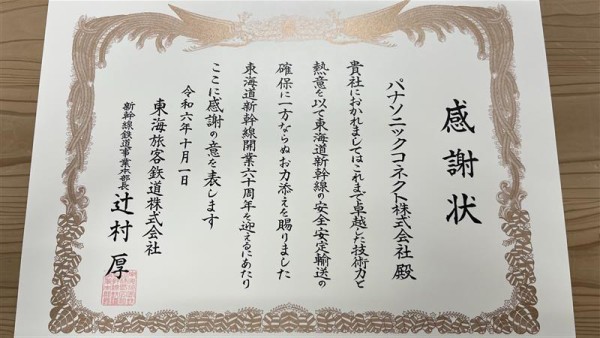 感謝状
パナソニックコネクト株式会社 殿
貴社におかれましてはこれまで卓越した技術力と
熱意を以て東海道新幹線の安全・安定輸送の
確保に一方ならぬお力添えを賜りました
東海道新幹線開業六十周年を迎えるにあたり
ここに感謝の意を表します
令和六年十月一日
東海旅客鉄道株式会社
新幹線鉄道事業本部長 辻村 厚